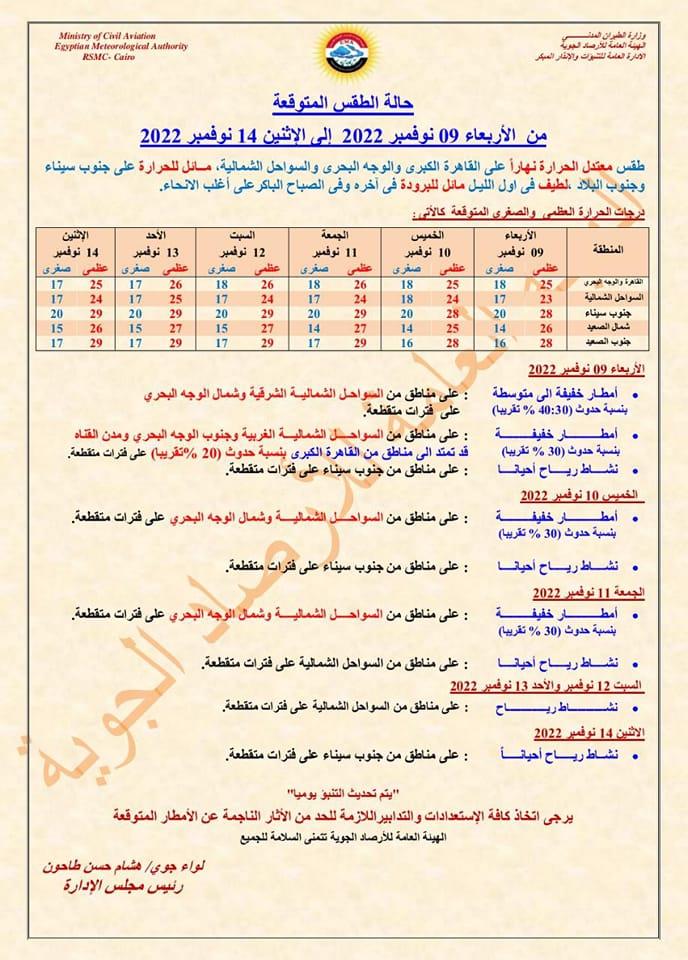 Ministry of Civil Aviation
Egyptian Meteorological Authority
RSMC- Cairo
وزارة الطيران المدنـــي
الهيئة العامة للأرصاد الجوية
الادارة العامة للتنبؤات والإنذار المبكر
حالة الطقس المتوقعة
من الأربعاء 09 نوفمبر 2022 إلى الإثنين 14 نوفمبر 2022
طقس معتدل الحرارة نهاراً على القاهرة الكبرى والوجه البحرى والسواحل الشمالية، مـائل للحرارة على جنوب سيناء
وجنوب البلاد ،لطيف فى اول الليل مائل للبرودة فى آخره وفى الصباح الباكرعلى أغلب الانحاء.
درجات الحرارة العظمى والصغرى المتوقعة كالأتى:
المنطقة الأربعاء الخميس الجمعة السبت الأحد الإثنين
09 نوفمبر 10 نوفمبر 11 نوفمبر 12 نوفمبر 13 نوفمبر 14 نوفمبر
عظمى صغرى عظمى صغرى عظمى صغرى عظمى صغرى عظمى صغرى عظمى صغرى
القاهرة والوجه البحري 25 18 25 18 26 18 26 18 26 17 25 17
السواحل الشمالية 23 17 24 18 24 17 24 17 25 17 24 17
جنوب سيناء 28 20 28 20 29 20 29 20 29 20 29 20
شمال الصعيد 26 14 25 14 27 14 27 15 27 15 26 15
جنوب الصعيد 28 16 28 16 29 17 29 17 29 17 29 17
الأربعاء 09 نوفمبر 2022
• أمطـار خفيفة الى متوسطة : على مناطق من السواحـل الشماليـة الشرقية وشمال الوجه البحري
بنسبة حدوث (40:30 % تقريبا) على فترات متقطعة.
• أمطــار خفيفــــة : على مناطق من السواحـل الشماليـــة الغربية وجنوب الوجه البحري ومدن القناه
بنسبة حدوث (30 % تقريبا) قد تمتد الى مناطق من القاهرة الكبرى بنسبة حدوث (20 %تقريبا) على فترات متقطعة.
• نشـاط ريـــاح أحيانــا : على مناطق من جنوب سيناء على فترات متقطعة.
الخميس 10 نوفمبر 2022
• أمطـــار خفيفــــة : على مناطق من السواحـــل الشماليـــة وشمال الوجه البحري على فترات متقطعة.
بنسبة حدوث (30 % تقريبا)
• نشـــاط ريــاح أحيانـــا : على مناطق من جنوب سيناء على فترات متقطعة.
الجمعة 11 نوفمبر 2022
• أمطـــار خفيفــــة : على مناطق من السواحـــل الشماليـــة وشمال الوجه البحري على فترات متقطعة.
بنسبة حدوث (30 % تقريبا)
• نشـــاط ريــاح أحيانـــا : على مناطق من السواحل الشمالية على فترات متقطعة.
السبت 12 نوفمبر والأحد 13 نوفمبر 2022
• نشــــــاط ريـــــاح : على مناطق من السواحل الشمالية على فترات متقطعة.
الاثنين 14 نوفمبر 2022
• نشـاط ريـــاح أحيانـــاً : على مناطق من جنوب سيناء على فترات متقطعة.
"يتم تحديث التنبؤ يوميا"
يرجى اتخاذ كافة الإستعدادات والتدابيراللازمة للحد من الأثار الناجمة عن الأمطار المتوقعة
الهيئة العامة للأرصاد الجوية تتمنى السلامة للجميع
لواء جوي/ هشام حسن طاحون
رئيس مجلس الإدارة